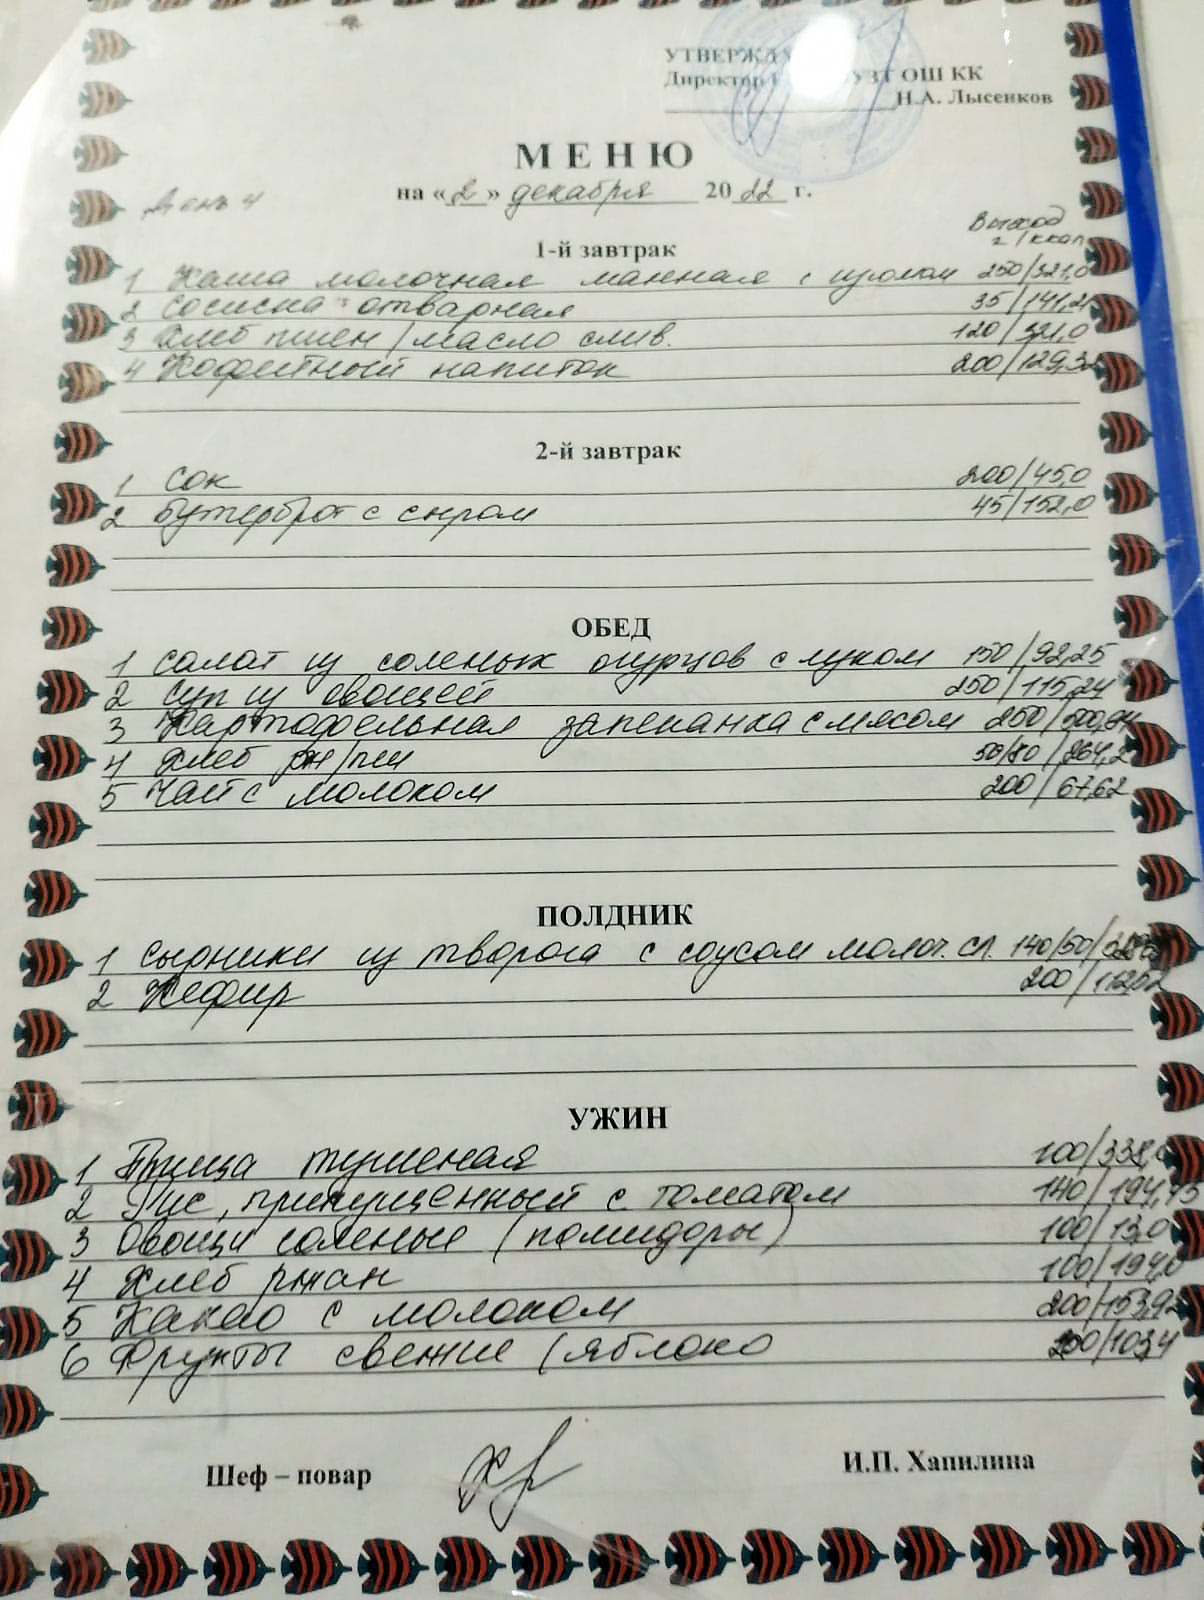 УТВЕРЖДА
Директор УЗТ ОШ КК
Н.А. Лысенков
МЕНЮ
на «2» декабря 2022 г.
День 4
Выход
г/ккал
1-й завтрак
1 Каша молочная манная с изюмом 250/321,0
2 Сосиска отварная 35/141,2
3 Хлеб пшен/масло слив. 120/321,0
4 Кофейный напиток 200/129,32
2-й завтрак
1 Сок 200/45,0
2 Бутерброт с сыром 45/152,0
ОБЕД
1 Салат из соленых огурцов с луком 150/92,25
2 Суп из овощей 250/115,24
3 Картофельная запеканка с мясом 250/
4 Хлеб рж/пш 50/80/264,2
5 Чай с молоком 200/67,62
ПОЛДНИК
1 Сырники из творога с соусом молоч. сл. 140/50/
2 Кефир 200/
УЖИН
1 Птица тушеная 100/338,
2 Рис, припущенный с томатом 140/194,73
3 Овощи соленые (помидоры) 100/13,0
4 Хлеб ржан 100/194,0
5 Какао с молоком 200/153,92
6 Фрукты свежие (яблоко 200/103,4
Шеф – повар И.П. Хапилина